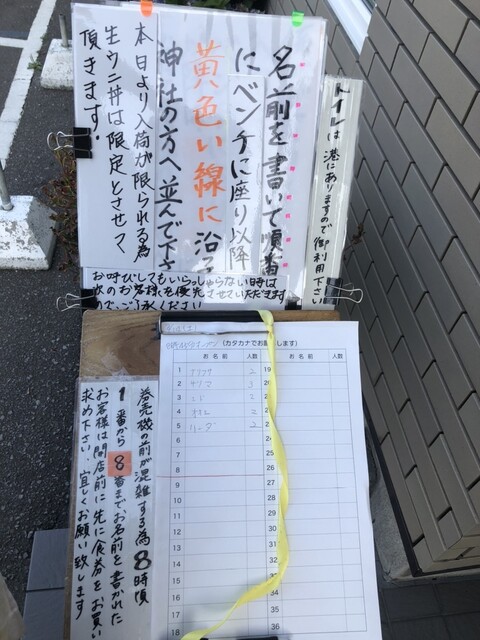 トイレは港にありますので御利用下さい
名前を書いて順番
にベンチに座り以降
黄色い線に沿って
神社の方へ並んで下さ
本日より入荷が限られる為
生ウニ丼は限定とさせつく
頂きます！
お呼びしてもいらっしゃらない時は
次のお客様を優先させていただきます
ので、ご了承ください
(カタカナでお願いします)
お名前 人数 お名前 人数
1 2 19
2
3
4
5 2
6
7
8 26
9 27
10 28
11 29
12 30
13 31
14 32
15 33
16 34
17 35
18 36
券売機の前が混雑する為8時頃
1番から8番までお名前を書かれた
お客様は開店前に先に食券をお買い
求め下さい。宜しくお願い致します